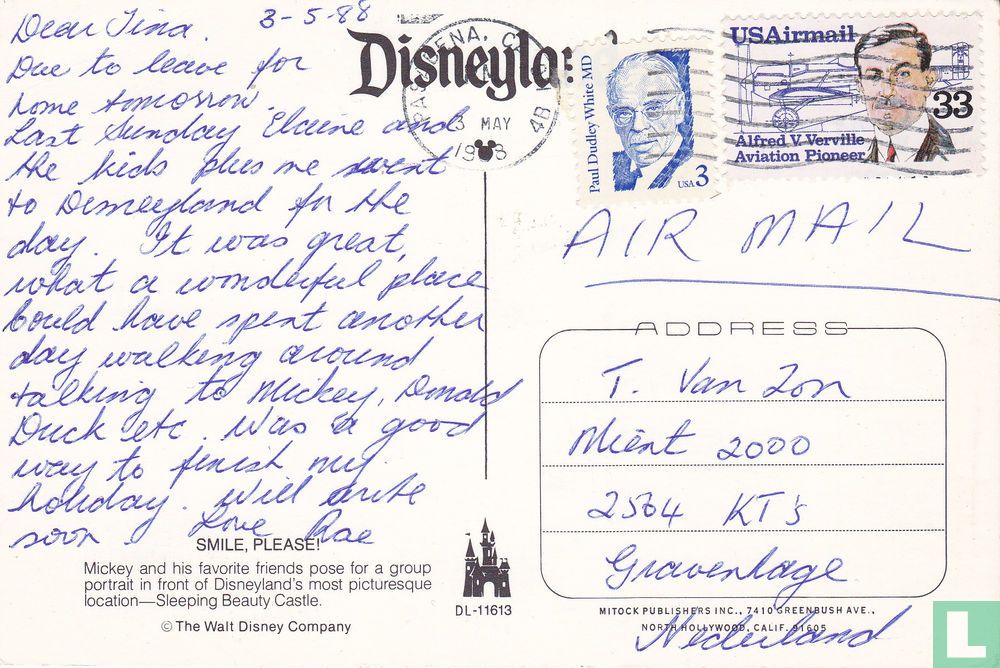 3-5-88
Dear Tina.
Due to leave for
home tomorrow.
Last Sunday Elaine and
the kids plus me went
to Disneyland for the
day. It was great,
what a wonderful place
Could have spent another
day walking around
talking to Mickey, Donald
Duck etc. Was a good
way to finish my
holiday. Will write
soon Love Rae
SMILE, PLEASE!
Mickey and his favorite friends pose for a group
portrait in front of Disneyland's most picturesque
location—Sleeping Beauty Castle.
© The Walt Disney Company
Disneyland
PASADENA, CA
3 MAY
1988
Paul Dudley White MD
USA 3
USAirmail
33
Alfred V. Verville
Aviation Pioneer
AIR MAIL
ADDRESS
T. Van Zon
Miënt 2000
2564 KT's
Gravenhage
Nederland
DL-11613
MITOCK PUBLISHERS INC., 7410 GREENBUSH AVE.,
NORTH HOLLYWOOD, CALIF. 91605
L